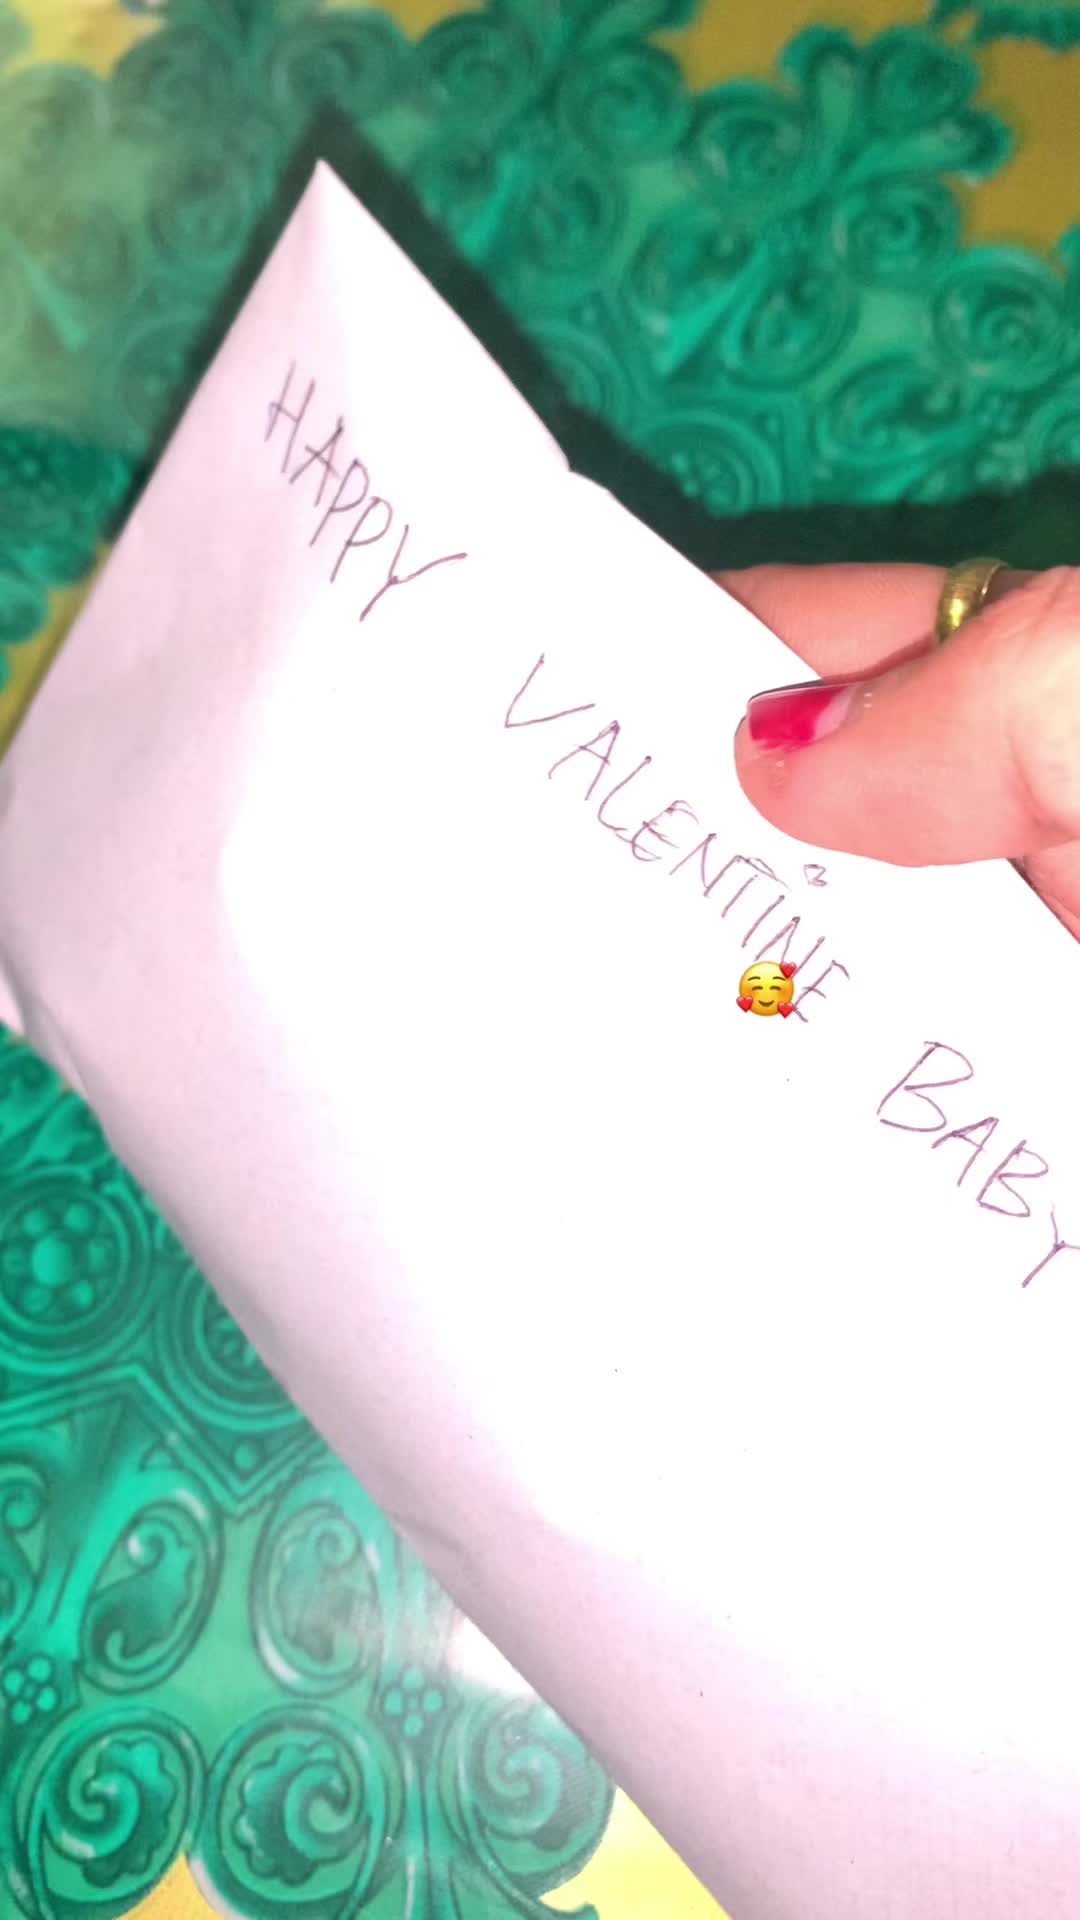 HAPPY VALENTINE BABY